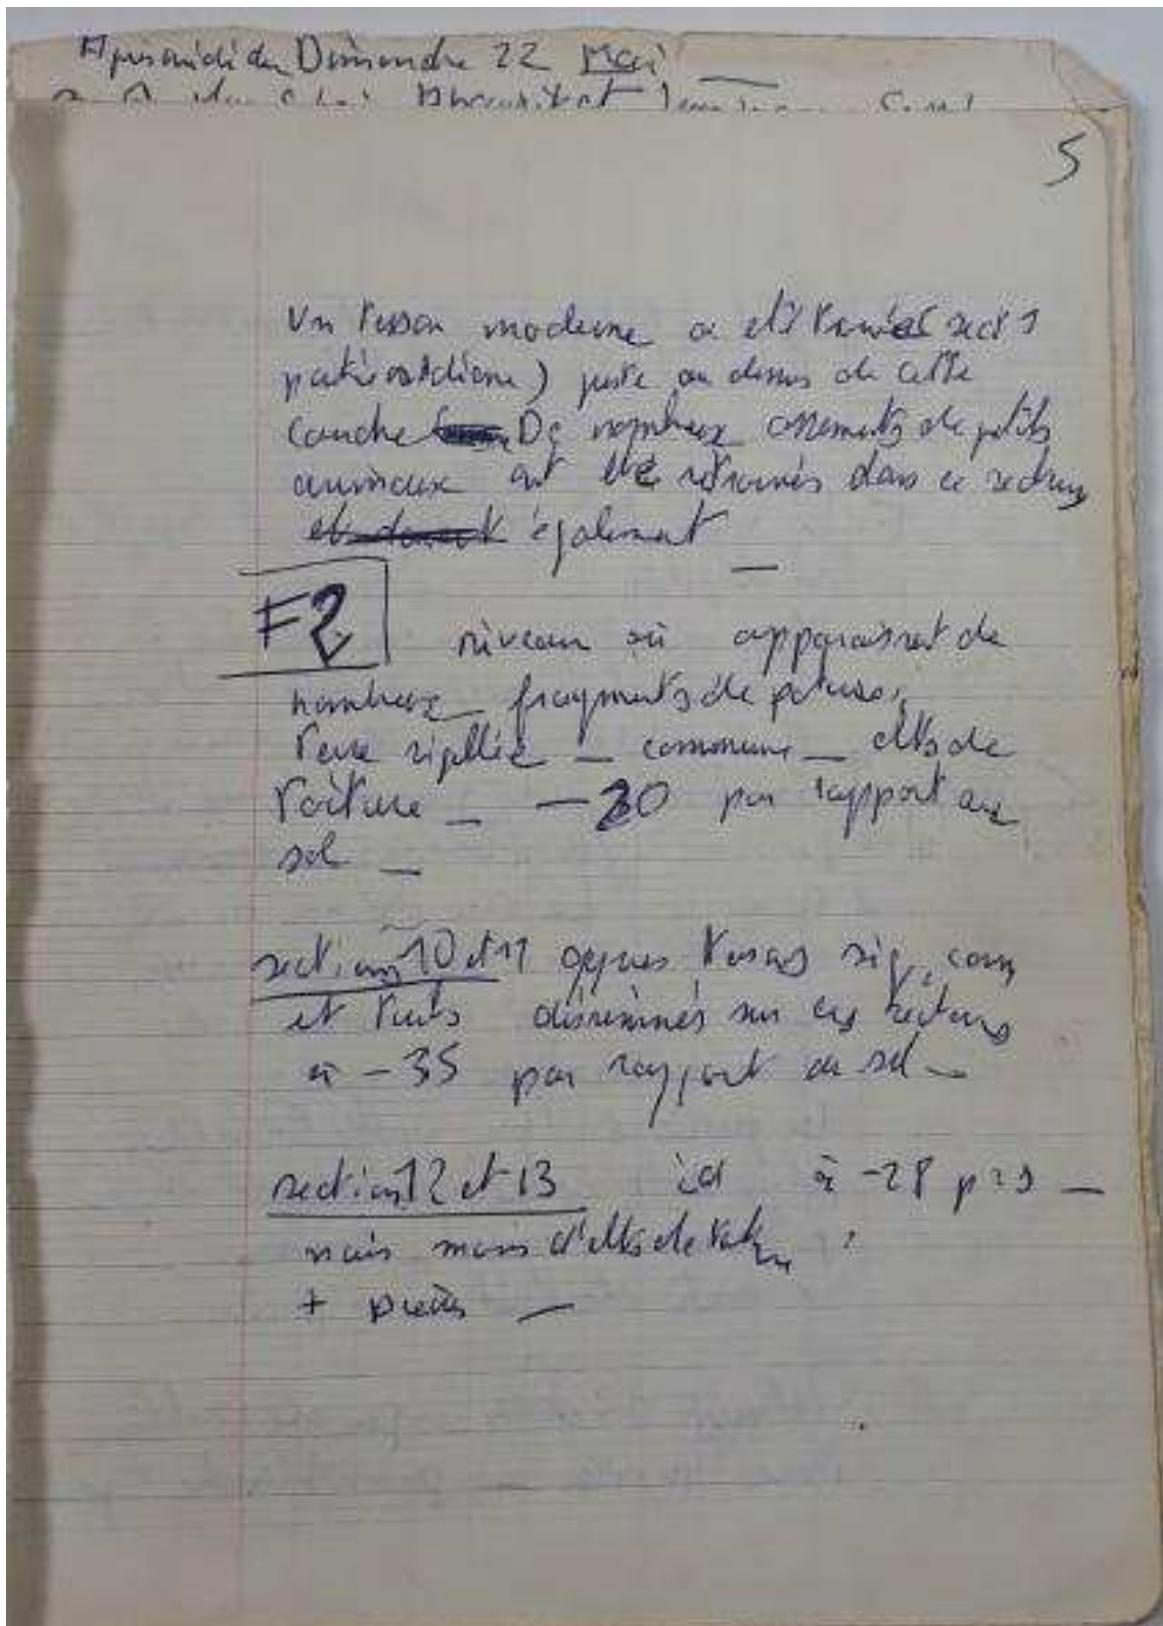 Après midi du Dimanche 22 Mai
5
Un tesson moderne a été trouvé (sect 1
partie médiane) juste au dessus de cette
couche De nombreux ossements de petits
animaux ont été retrouvés dans ce secteur
également
F2
niveau où apparaissent de
nombreux fragments de poteries
terre sigillée - commune - elts de
toiture - -20 par rapport au
sol -
sections 10 et 11 qques tessons sig, com
et tuiles disséminés sur ces secteurs
à -35 par rapport au sol -
sections 12 et 13 id à -28 p r s -
mais moins d'elts de toiture
+